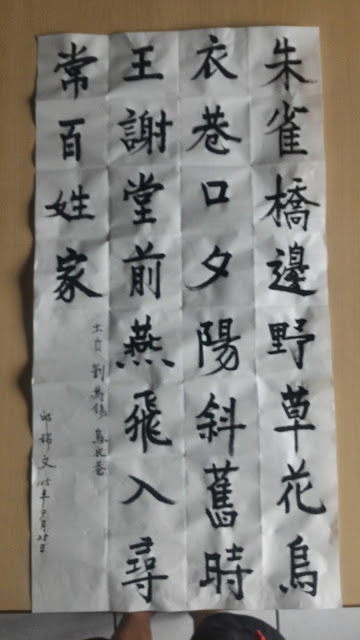 朱雀橋邊野草花烏
衣巷口夕陽斜舊時
王謝堂前燕飛入尋
常百姓家
自劉禹錫 烏衣巷
邱錦文 105年9月25日